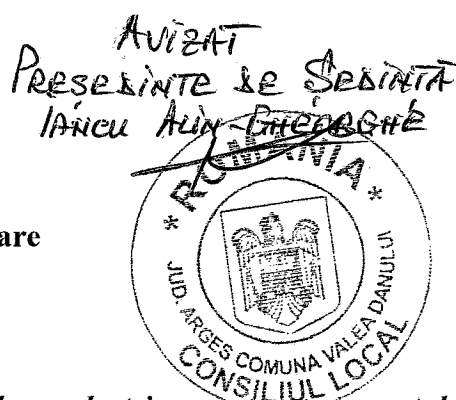 AVIZAT
PREȘEDINTE DE ȘEDINȚĂ
IANCU ALIN GHEORGHE
* ROMANIA *
are
JUD. ARGES COMUNA VALEA DANULUI
CONSILIUL LOCAL